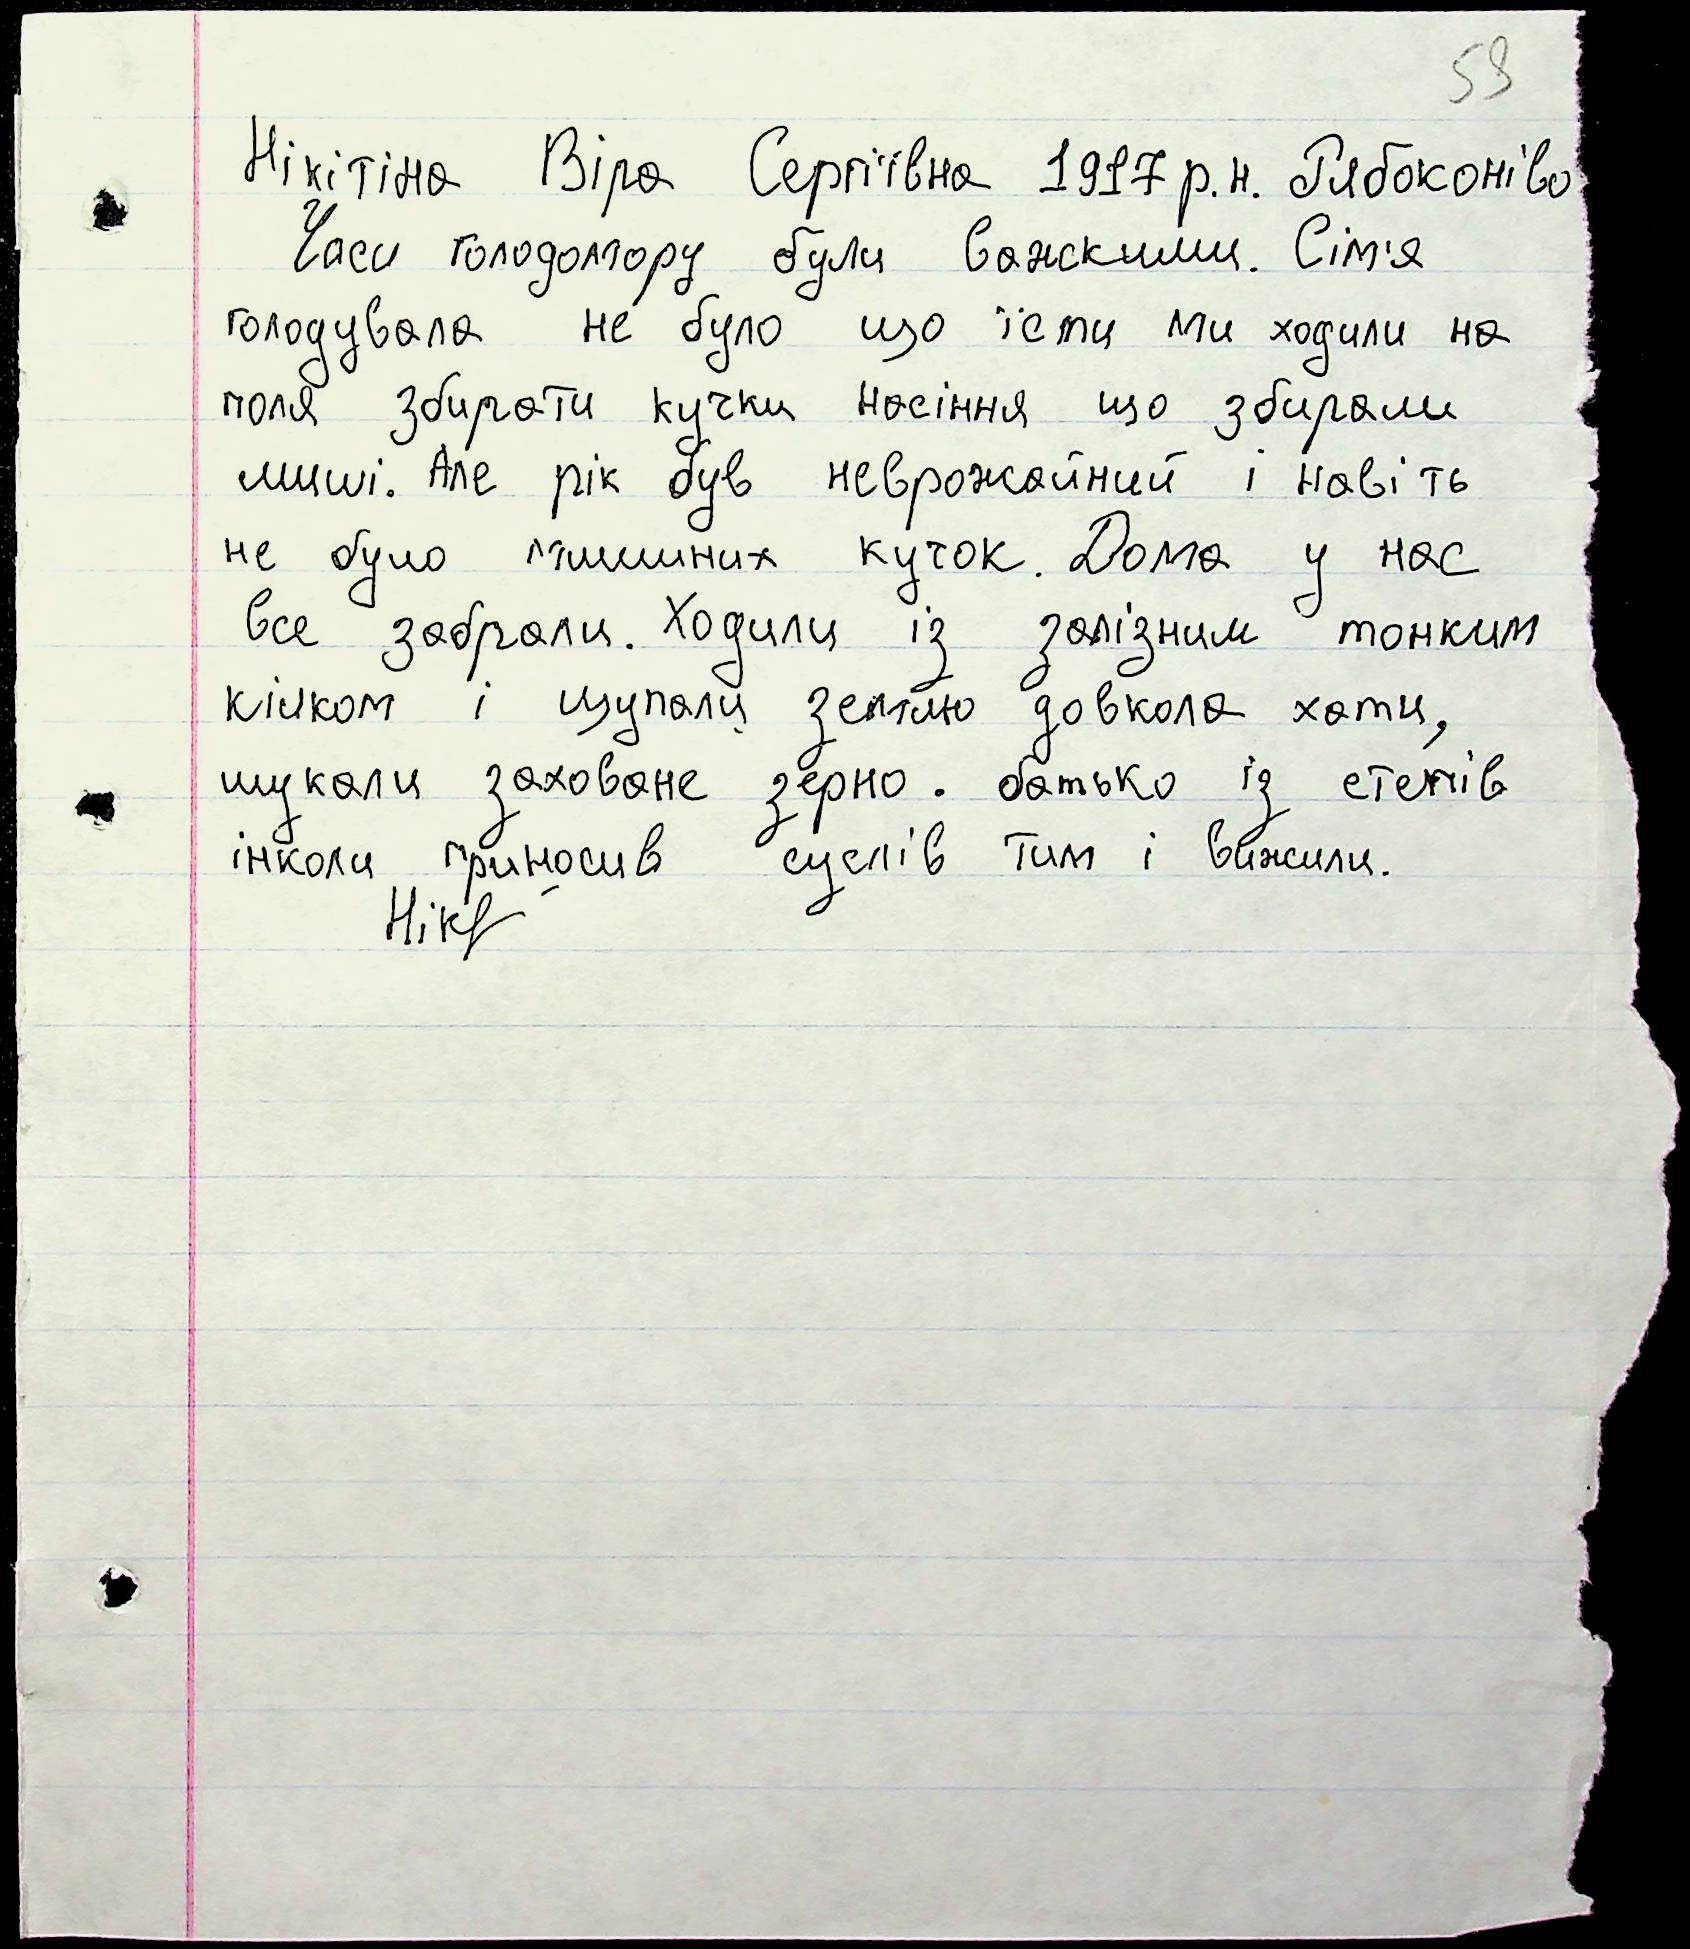 59
Нікітіна Віра Сергіївна 1917 р.н. Рябоконіво
Часи голодомору були важскими. Сім'я
голодувала не було що їсти ми ходили на
поля збирати кучки насіння що збирали
миші. Але рік був неврожайний і навіть
не було мишиних кучок. Дома у нас
все забрали. Ходили із залізним тонким
кілком і щупали землю довкола хати,
шукали заховане зерно. батько із степів
інколи приносив суслів тим і вижили.
Нік